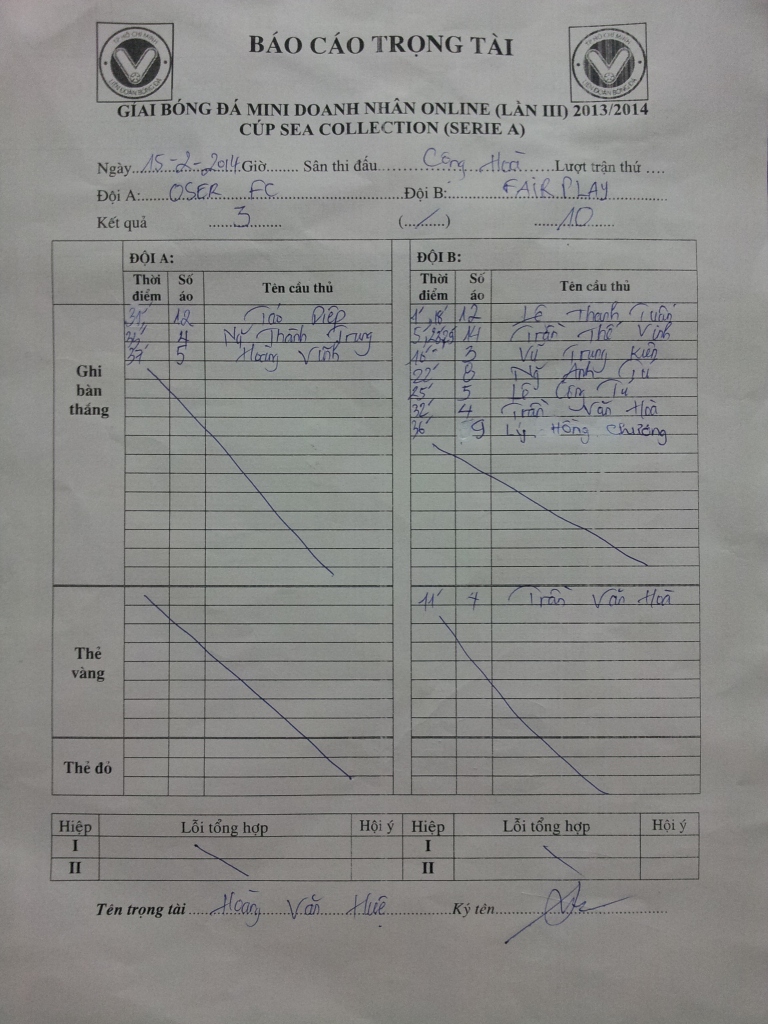 TP HỒ CHÍ MINH
LIÊN ĐOÀN BÓNG ĐÁ
BÁO CÁO TRỌNG TÀI
TP HỒ CHÍ MINH
LIÊN ĐOÀN BÓNG ĐÁ
GIẢI BÓNG ĐÁ MINI DOANH NHÂN ONLINE (LẦN III) 2013/2014
CÚP SEA COLLECTION (SERIE A)
Ngày 15-2-2014 Giờ........ Sân thi đấu Cộng Hoà Lượt trận thứ ....
Đội A: OSER FC Đội B: FAIR PLAY
Kết quả 3 (.../...) 10
ĐỘI A: ĐỘI B:
Thời điểm Số áo Tên cầu thủ Thời điểm Số áo Tên cầu thủ
Ghi bàn thắng
31' 12 Táo Diệp 1', 18' 12 Lê Thanh Tuấn
4 Ng Thành Trung 14 Trần Thế Vinh
37' 5 Hoàng Vĩnh 16' 3 Vũ Trung Kiên
22' 8 Ng Anh Tú
25' 5 Lê Tú
32' 4 Trần Văn Hoà
36' 9 Lý Hồng Chương
Thẻ vàng
11' 4 Trần Văn Hoà
Thẻ đỏ
Hiệp Lỗi tổng hợp Hội ý Hiệp Lỗi tổng hợp Hội ý
I I
II II
Tên trọng tài Hoàng Văn Huệ Ký tên